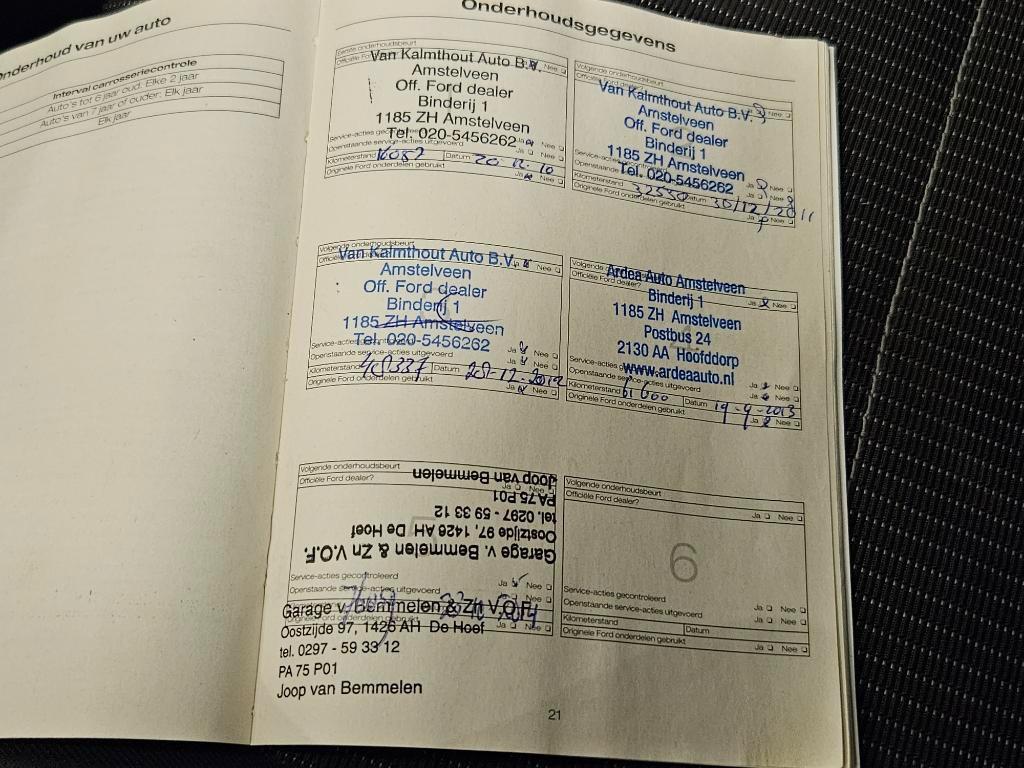 Onderhoud van uw auto
Interval carrosseriecontrole
Auto's tot 6 jaar oud: Elke 2 jaar
Auto's van 7 jaar of ouder: Elk jaar
Elk jaar
Onderhoudsgegevens
Eerste onderhoudsbeurt
Van Kalmthout Auto B.V.
Nee
Amstelveen
Off. Ford dealer
Binderij 1
1185 ZH Amstelveen
Tel. 020-5456262
Ja Nee
Openstaande service-acties uitgevoerd Ja Nee
Kilometerstand Datum 20.12.10
Originele Ford onderdelen gebruikt Ja Nee
Volgende onderhoudsbeurt
Van Kalmthout Auto B.V.
Nee
Amstelveen
Off. Ford dealer
Binderij 1
1185 ZH Amstelveen
Tel. 020-5456262
Ja Nee
Kilometerstand 32530 Datum 30/12/2011
Originele Ford onderdelen gebruikt Ja Nee
Volgende onderhoudsbeurt
Van Kalmthout Auto B.V.
Ja Nee
Amstelveen
Off. Ford dealer
Binderij 1
1185 ZH Amstelveen
Tel. 020-5456262
Ja Nee
Openstaande service-acties uitgevoerd Ja Nee
Kilometerstand 48337 Datum 28-12-2012
Originele Ford onderdelen gebruikt Ja Nee
Ardea Auto Amstelveen
Officiële Ford dealer? Ja Nee
Binderij 1
1185 ZH Amstelveen
Postbus 24
2130 AA Hoofddorp
www.ardeaauto.nl
Ja Nee
Openstaande service-acties uitgevoerd Ja Nee
Kilometerstand 61600 Datum 19-9-2013
Originele Ford onderdelen gebruikt Ja Nee
Volgende onderhoudsbeurt
Officiële Ford dealer? Ja Nee
Garage v. Bemmelen & Zn V.O.F.
Oostzijde 97, 1426 AH De Hoef
tel. 0297 - 59 33 12
PA 75 P01
Joop van Bemmelen
Service-acties gecontroleerd Ja Nee
Openstaande service-acties uitgevoerd Nee
Garage v. Bemmelen & Zn V.O.F.
Ja Nee
Oostzijde 97, 1426 AH De Hoef
tel. 0297 - 59 33 12
PA 75 P01
Joop van Bemmelen
Volgende onderhoudsbeurt
Officiële Ford dealer?
Ja Nee
6
Service-acties gecontroleerd
Openstaande service-acties uitgevoerd Ja Nee
Kilometerstand Datum Ja Nee
Originele Ford onderdelen gebruikt Ja Nee
21